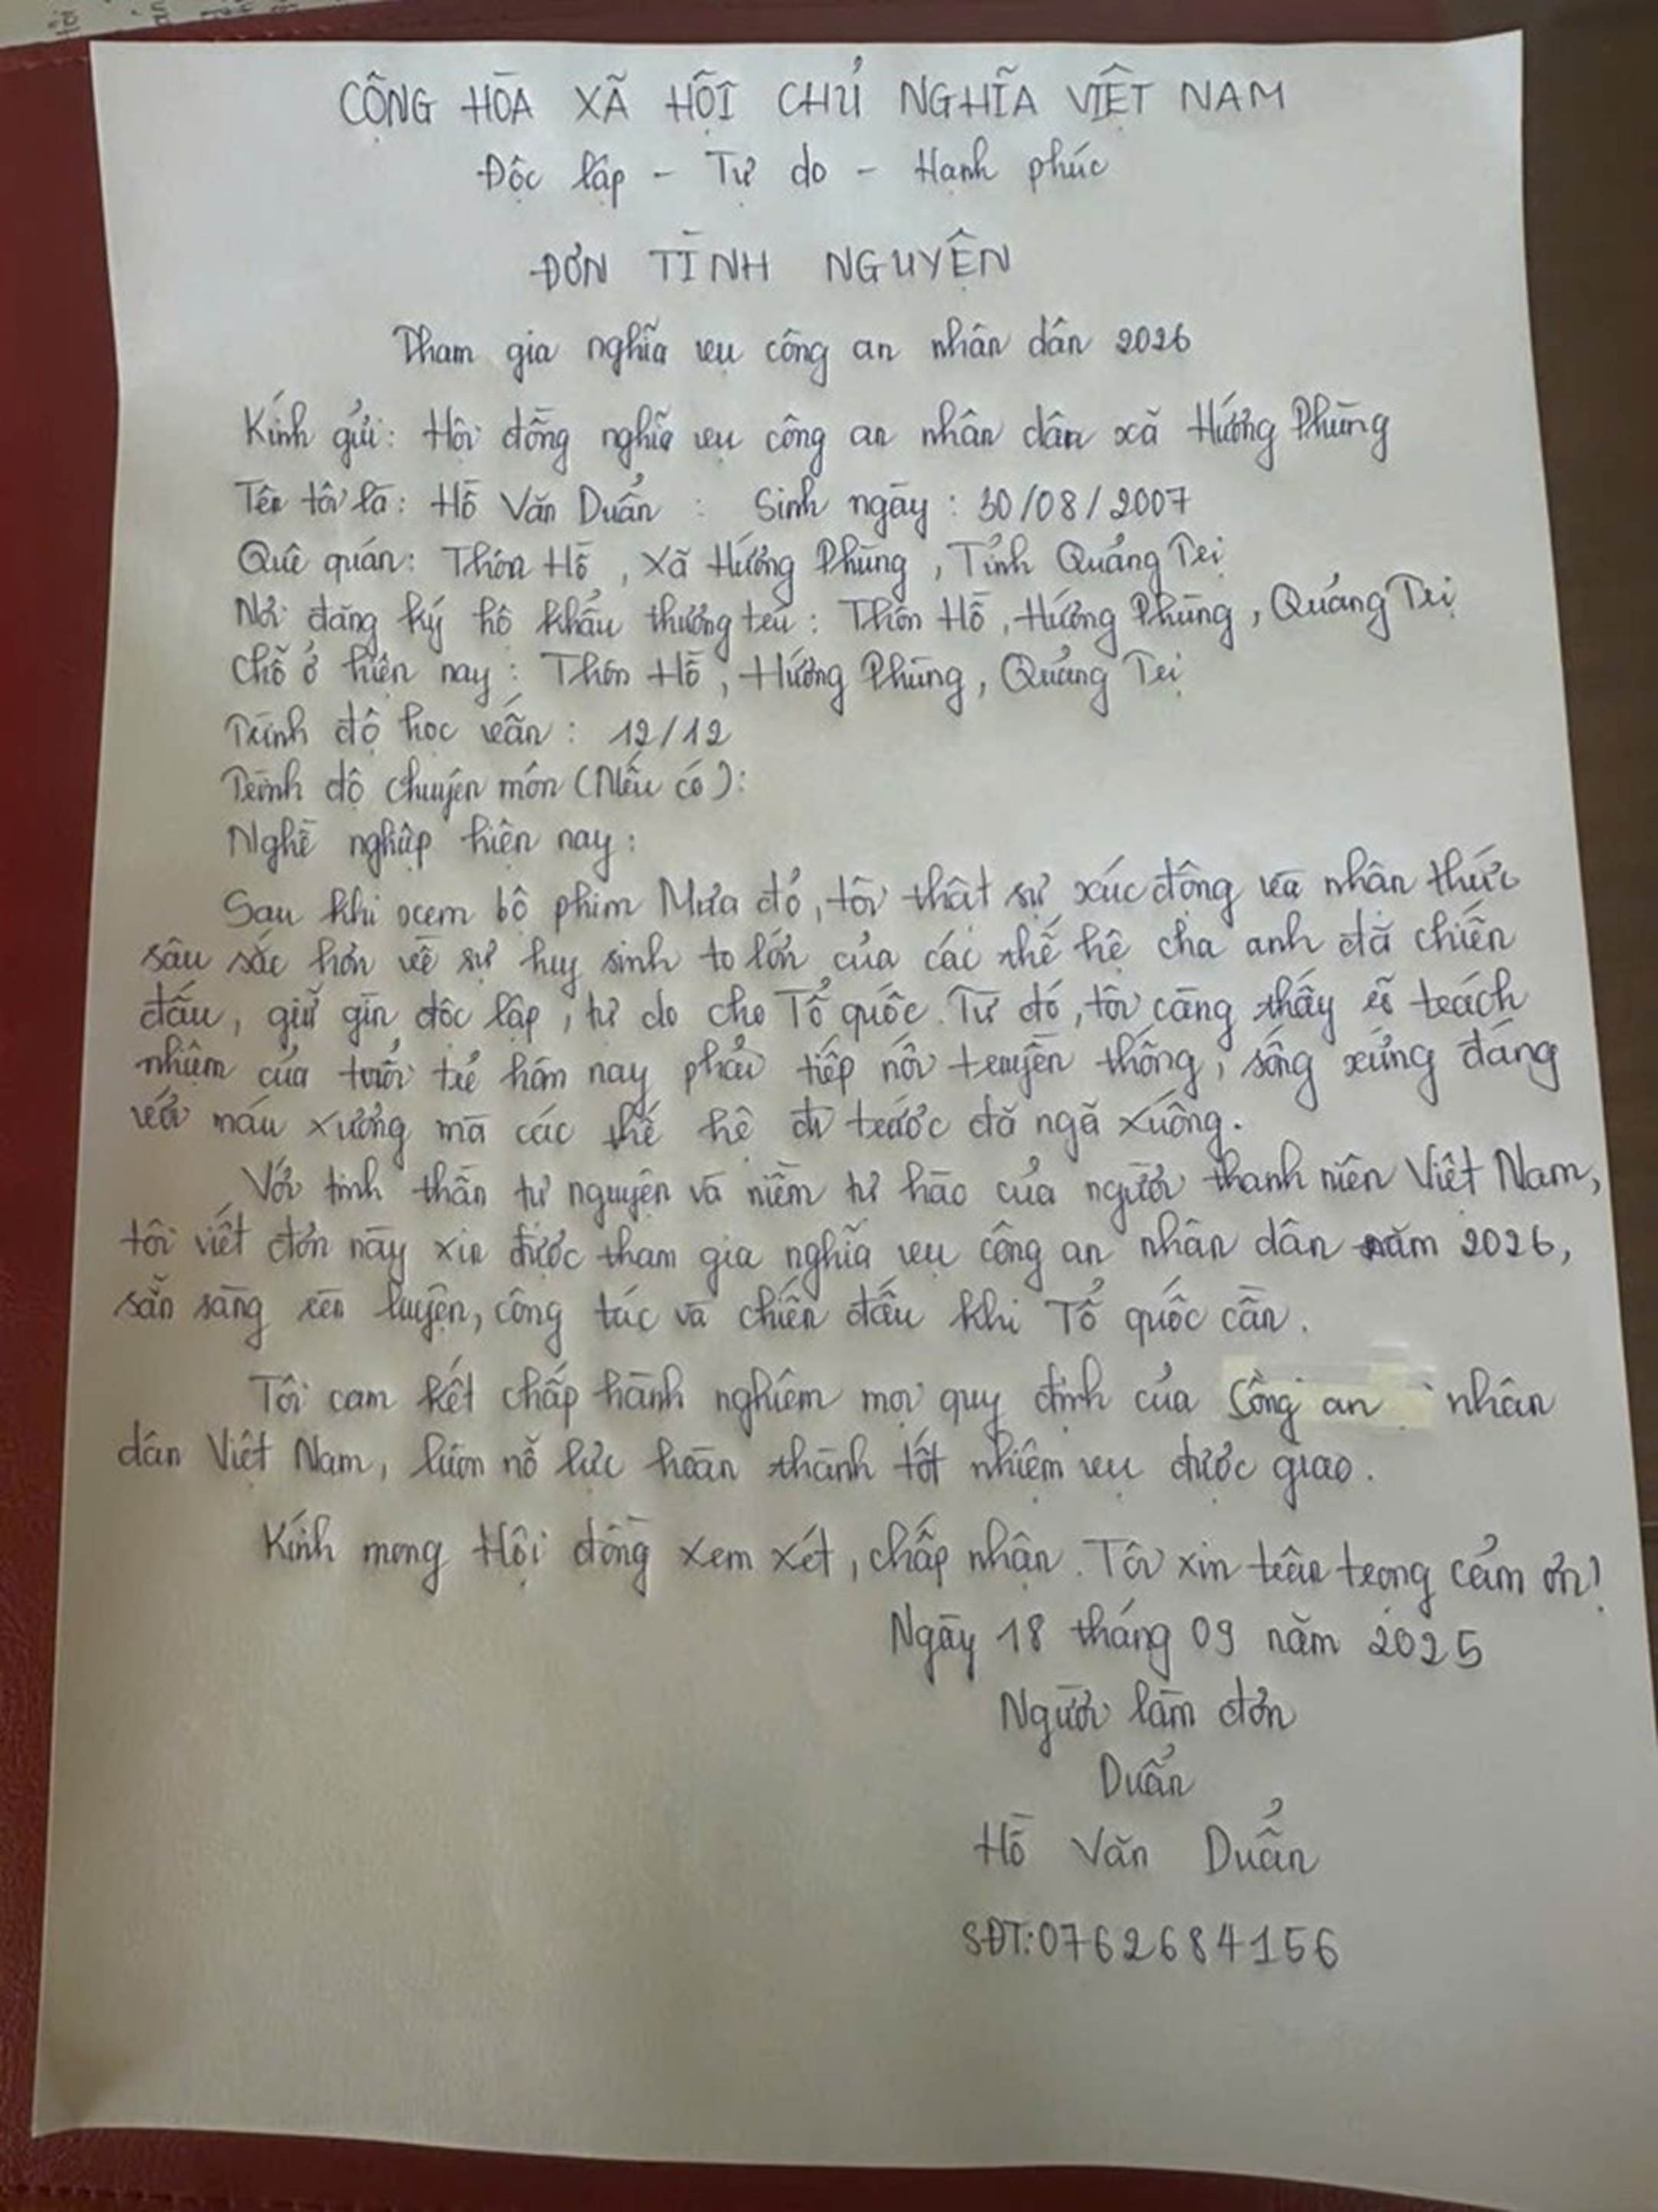 CỘNG HÒA XÃ HỘI CHỦ NGHĨA VIỆT NAM
Độc lập - Tự do - Hạnh phúc
ĐƠN TÌNH NGUYỆN
Tham gia nghĩa vụ công an nhân dân 2026
Kính gửi: Hội đồng nghĩa vụ công an nhân dân xã Hướng Phùng
Tên tôi là: Hồ Văn Duẩn : Sinh ngày: 30/08/2007
Quê quán: Thôn Hồ, Xã Hướng Phùng, Tỉnh Quảng Trị
Nơi đăng ký hộ khẩu thường trú: Thôn Hồ, Hướng Phùng, Quảng Trị
Chỗ ở hiện nay: Thôn Hồ, Hướng Phùng, Quảng Trị
Trình độ học vấn: 12/12
Trình độ chuyên môn (Nếu có):
Nghề nghiệp hiện nay:
Sau khi xem bộ phim Mưa đỏ, tôi thật sự xúc động và nhận thức
sâu sắc hơn về sự hy sinh to lớn của các thế hệ cha anh đã chiến
đấu, giữ gìn độc lập, tự do cho Tổ quốc. Từ đó, tôi càng thấy rõ trách
nhiệm của tuổi trẻ hôm nay phải tiếp nối truyền thống, sống xứng đáng
với máu xương mà các thế hệ đi trước đã ngã xuống.
Với tinh thần tự nguyện và niềm tự hào của người thanh niên Việt Nam,
tôi viết đơn này xin được tham gia nghĩa vụ công an nhân dân năm 2026,
sẵn sàng rèn luyện, công tác và chiến đấu khi Tổ quốc cần.
Tôi cam kết chấp hành nghiêm mọi quy định của Công an nhân
dân Việt Nam, luôn nỗ lực hoàn thành tốt nhiệm vụ được giao.
Kính mong Hội đồng xem xét, chấp nhận. Tôi xin trân trọng cảm ơn!
Ngày 18 tháng 09 năm 2025
Người làm đơn
Duẩn
Hồ Văn Duẩn
SĐT:0762684156